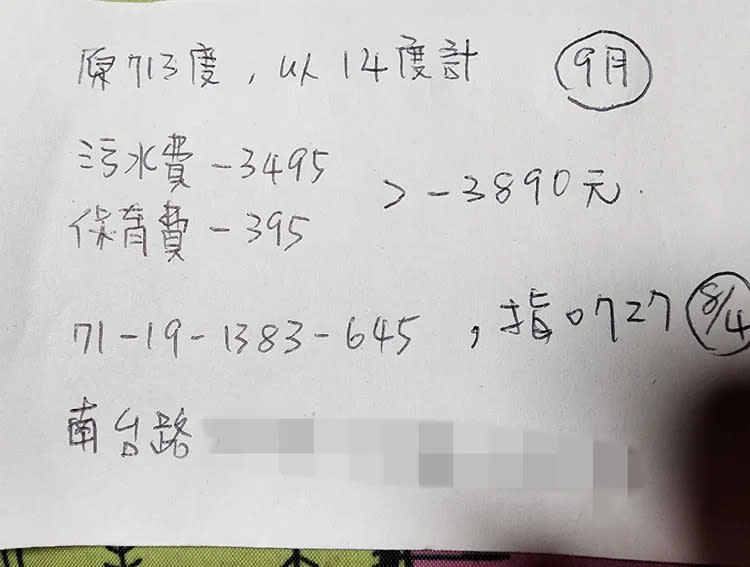 原713度，以14度計 9月
污水費-3495
>-3890元.
保育費-395
71-19-1383-645，指0727 8/4
南台路